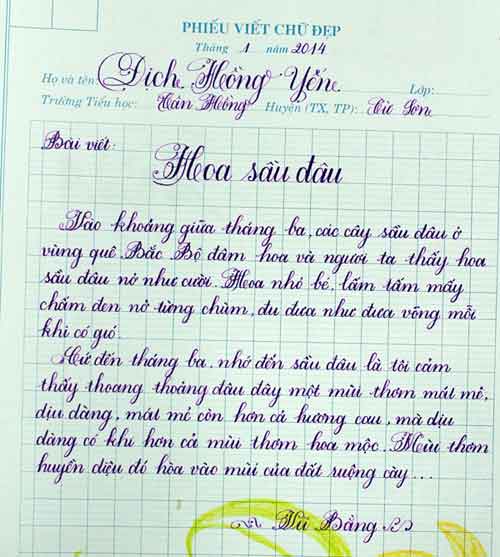 PHIẾU VIẾT CHỮ ĐẸP
Tháng 1 năm 2014
Họ và tên: Dịch Hồng Yến Lớp:
Trường Tiểu học: Tân Hồng Huyện (TX, TP): Từ Sơn
Bài viết:
Hoa sầu đâu
Vào khoảng giữa tháng ba, các cây sầu đâu ở
vùng quê Bắc Bộ đâm hoa và người ta thấy hoa
sầu đâu nở như cười. Hoa nhỏ bé, lấm tấm mấy
chấm đen nở từng chùm, đu đưa như đưa võng mỗi
khi có gió.
Cứ đến tháng ba, nhớ đến sầu đâu là tôi cảm
thấy thoang thoảng đâu đây một mùi thơm mát mẻ,
dịu dàng, mát mẻ còn hơn cả hương cau, mà dịu
dàng có khi hơn cả mùi thơm hoa mộc. Mùi thơm
huyền diệu đó hòa vào mùi của đất ruộng cày...
Vũ Bằng